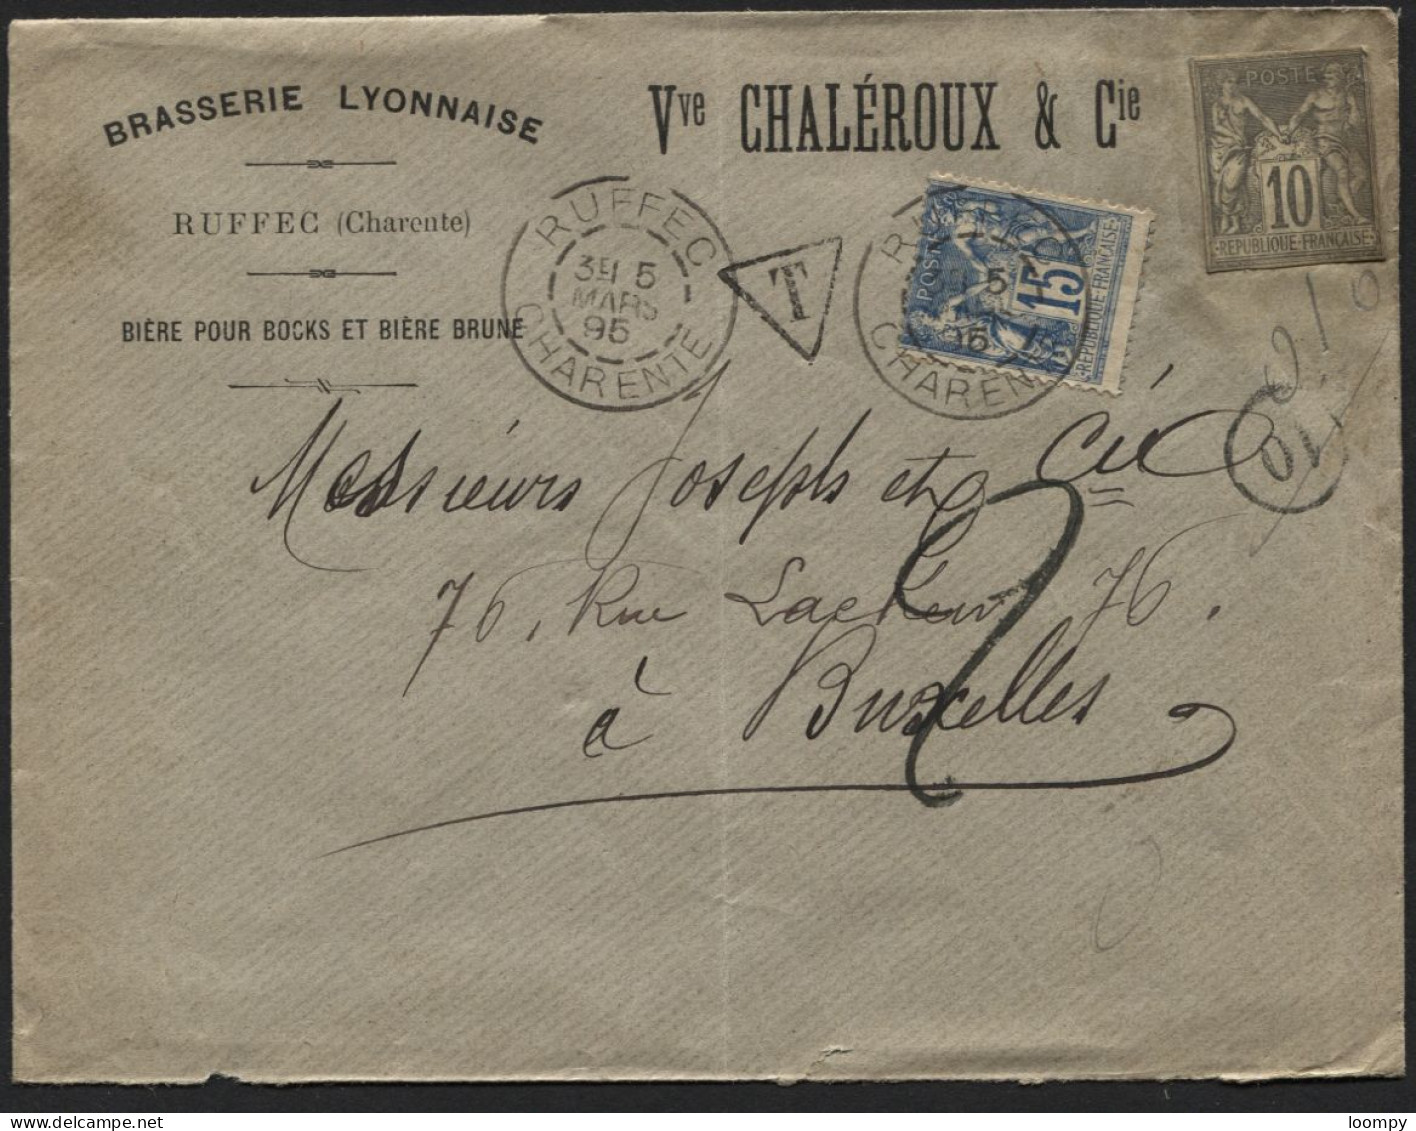 BRASSERIE LYONNAISE
RUFFEC (Charente)
BIÈRE POUR BOCKS ET BIÈRE BRUNE
Vve CHALÉROUX & Cie
POSTE
10
RÉPUBLIQUE-FRANÇAISE
RUFFEC
3E 5
MARS
95
CHARENTE
T
POSTE
15
RÉPUBLIQUE-FRANÇAISE
5
95
CHARENTE
10
Messieurs Josephs et Cie
76, Rue Laeken 76.
à Bruxelles
loompy